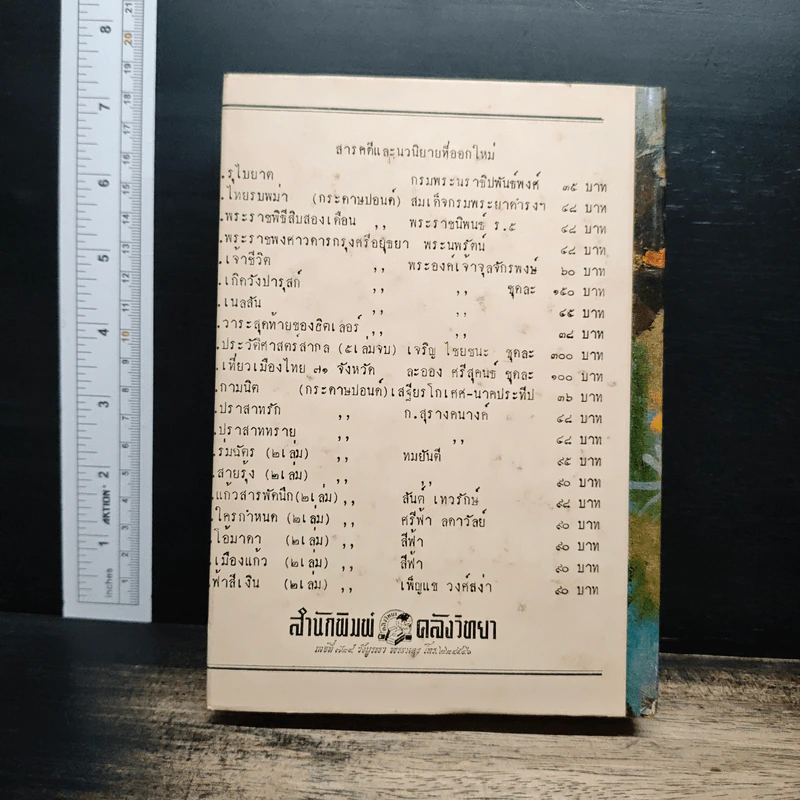 สารคดีและนวนิยายที่ออกใหม่
.รุไบยาต กรมพระนราธิปพันธ์พงศ์ ๓๕ บาท
.ไทยรบพม่า (กระดาษปอนด์) สมเด็จกรมพระยาดำรงฯ ๔๘ บาท
.พระราชพิธีสิบสองเดือน ,, พระราชนิพนธ์ ร.๕ ๔๘ บาท
.พระราชพงศาวดารกรุงศรีอยุธยา พระนพรัตน์ ๔๘ บาท
.เจ้าชีวิต ,, พระองค์เจ้าจุลจักรพงษ์ ๖๐ บาท
.เกิดวังปารุสก์ ,, ,, ชุดละ ๑๕๐ บาท
.เนลสัน ,, ,, ๔๕ บาท
.วาระสุดท้ายของฮิตเลอร์ ,, ,, ๓๘ บาท
.ประวัติศาสตร์สากล (๕เล่มจบ) เจริญ ไชยชนะ ชุดละ ๓๐๐ บาท
.เที่ยวเมืองไทย ๗๑ จังหวัด ละออง ศรีสุคนธ์ ชุดละ ๑๐๐ บาท
.กามนิต (กระดาษปอนด์) เสฐียรโกเศศ-นาคประทีป ๓๖ บาท
.ปราสาทรัก ,, ก.สุรางคนางค์ ๔๘ บาท
.ปราสาททราย ,, ,, ๔๘ บาท
.ร่มฉัตร (๒เล่ม) ,, ทมยันตี ๙๕ บาท
.สายรุ้ง (๒เล่ม) ,, ,, ๙๐ บาท
.แก้วสารพัดนึก(๒เล่ม) ,, สันต์ เทวรักษ์ ๙๘ บาท
.ใครกำหนด (๒เล่ม) ,, ศรีฟ้า ลดาวัลย์ ๙๐ บาท
.โอ้มาดา (๒เล่ม) ,, สีฟ้า ๙๐ บาท
.เมืองแก้ว (๒เล่ม) ,, สีฟ้า ๙๐ บาท
ฟ้าสีเงิน (๒เล่ม) ,, เพ็ญแข วงศ์สง่า ๙๐ บาท
สำนักพิมพ์ คลังวิทยา
inches
AKTION
1
2
3
4
5
6
7
8
10
11
12
13
14
15
16
17
18
19
20
21